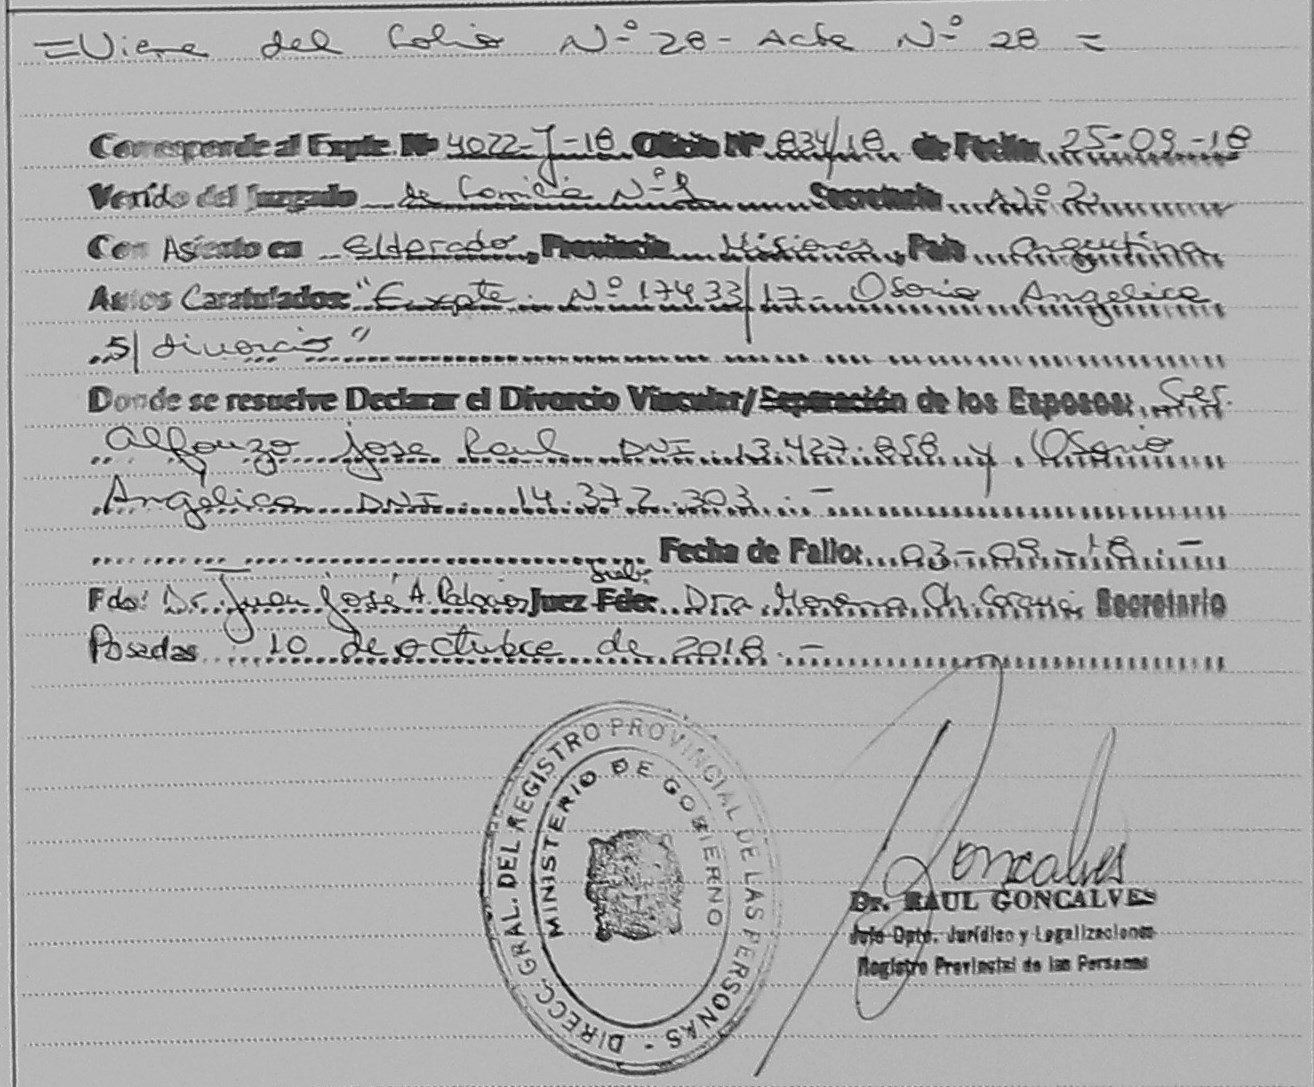 =Viene del Folio Nº 28 - Acta Nº 28 =
Corresponde al Expte. Nº 4022-J-18 Oficio Nº 834/18 de Fecha 25-09-18
Venido del Juzgado de Familia Nº 1 Secretaria Nº 2
Con Asiento en Eldorado, Provincia Misiones, País Argentina
Autos Caratulados: "Expte. Nº 17433/17 - Osorio Angelica
S/ divorcio"
Donde se resuelve Declarar el Divorcio Vincular/Separación de los Esposos: Sres.
Alfonzo Jose Raul DNI 13.427.858 y Osorio
Angélica DNI. 14.372.303.-
Fecha de Fallo: 03-09-18.-
Fdo: Dr. Juan José A. Palacios Juez Sub. Fdo: Dra. Morena Ch. Secretario
Posadas 10 de octubre de 2018.-
DIRECC. GRAL. DEL REGISTRO PROVINCIAL DE LAS PERSONAS -
MINISTERIO DE GOBIERNO
Goncalves
Dr. RAUL GONCALVES
Jefe Dpto. Jurídico y Legalizaciones
Registro Provincial de las Personas